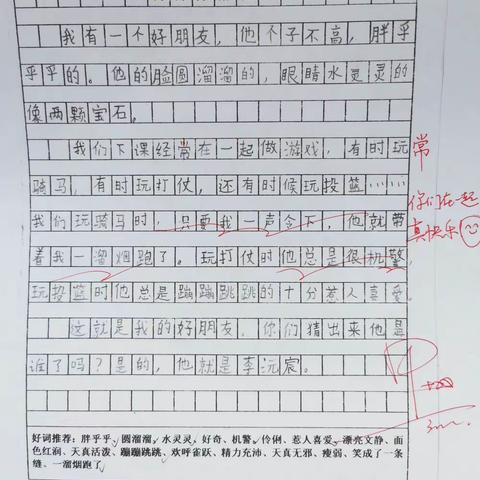 我有一个好朋友，他个子不高，胖乎
乎乎的。他的脸圆溜溜的，眼睛水灵灵的
像两颗宝石。
我们下课经常在一起做游戏，有时玩
常
骑马，有时玩打仗，还有时候玩投篮……
你们在一起
真快乐
我们玩骑马时，只要我一声令下，他就带
着我一溜烟跑了。玩打仗时他总是很机警
玩投篮时他总是蹦蹦跳跳的十分惹人喜爱。
这就是我的好朋友，你们猜出来他是
谁了吗？是的，他就是李沅宸。
好词推荐：胖乎乎、圆溜溜，水灵灵，好奇、机警、伶俐、惹人喜爱、漂亮文静、面
色红润、天真活泼、蹦蹦跳跳、欢呼雀跃、精力充沛、天真无邪、瘦弱、笑成了一条
缝、一溜烟跑了